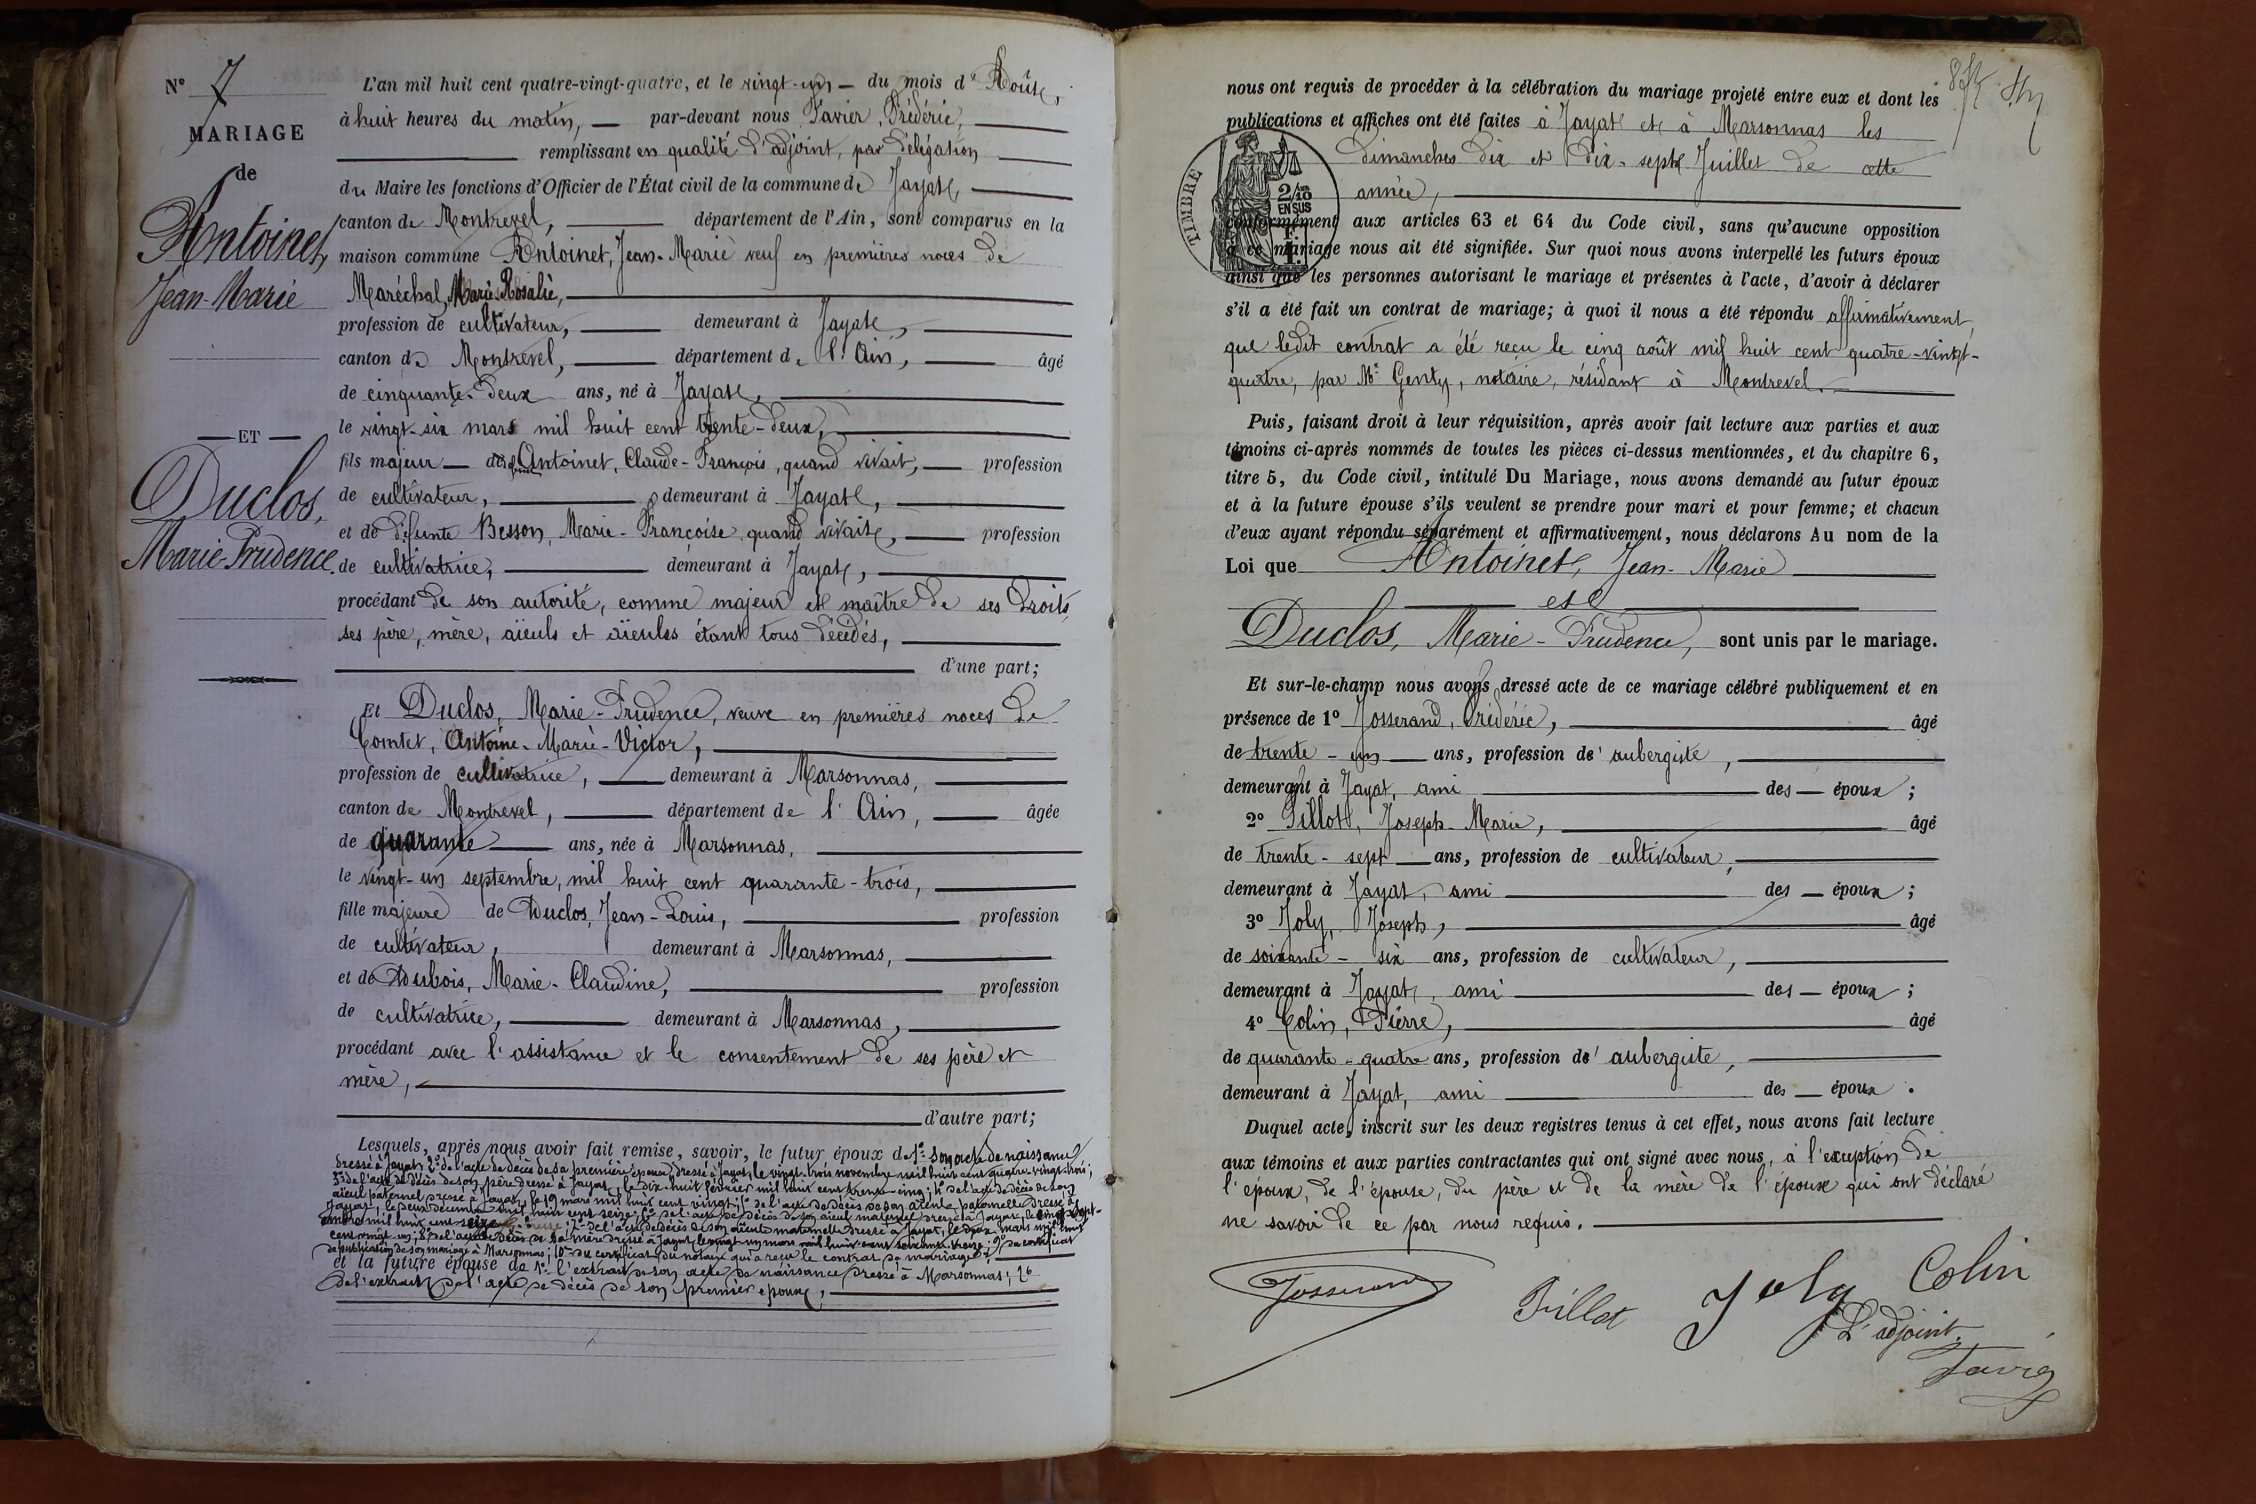 N° 7
MARIAGE
de
Antoinet,
Jean-Marie
ET
Duclos,
Marie-Prudence.
L'an mil huit cent quatre-vingt-quatre, et le vingt-un du mois d'Août,
à huit heures du matin, par-devant nous Favier, Frédéric,
remplissant en qualité d'adjoint, par délégation
du Maire les fonctions d'Officier de l'État civil de la commune de Jayat,
canton de Montrevel, département de l'Ain, sont comparus en la
maison commune Antoinet, Jean-Marie veuf en premières noces de
Maréchal, Marie-Rosalie,
profession de cultivateur, demeurant à Jayat,
canton de Montrevel, département de l'Ain, âgé
de cinquante-deux ans, né à Jayat,
le vingt-six mars mil huit cent trente-deux,
fils majeur de Antoinet, Claude-François, quand vivait, profession
de cultivateur, demeurant à Jayat,
et de défunte Besson, Marie-Françoise, quand vivait, profession
de cultivatrice, demeurant à Jayat,
procédant de son autorité, comme majeur et maître de ses droits,
ses père, mère, aïeuls et aïeules étant tous décédés,
d'une part;
Et Duclos, Marie-Prudence, veuve en premières noces de
Comtet, Antoine-Marie-Victor,
profession de cultivatrice, demeurant à Marsonnas,
canton de Montrevel, département de l'Ain, âgée
de quarante ans, née à Marsonnas,
le vingt-un septembre, mil huit cent quarante-trois,
fille majeure de Duclos, Jean-Louis, profession
de cultivateur, demeurant à Marsonnas,
et de Dubois, Marie-Claudine, profession
de cultivatrice, demeurant à Marsonnas,
procédant avec l'assistance et le consentement de ses père et
mère,
d'autre part;
Lesquels, après nous avoir fait remise, savoir, le futur époux de 1° son acte de naissance
dressé à Jayat; 2° de l'acte de décès de sa première épouse, dressé à Jayat, le vingt-trois novembre mil huit cent quatre-vingt-trois;
3° de l'acte de décès de son père dressé à Jayat, le dix-huit février mil huit cent trente-cinq; 4° de l'acte de décès de son
aïeul paternel dressé à Jayat, le 19 mars mil huit cent vingt; 5° de l'acte de décès de son aïeule paternelle dressé à
Jayat, le deux décembre mil huit cent seize; 6° de l'acte de décès de son aïeul maternel dressé à Jayat, le vingt-sept
mil huit cent seize; 7° de l'acte de décès de son aïeule maternelle dressé à Jayat, le deux mars mil huit
cent vingt-un; 8° de l'acte de décès de sa mère dressé à Jayat, le vingt-un mars mil huit cent soixante-treize; 9° du certificat
de publication de son mariage à Marsonnas; 10° du certificat du notaire qui a reçu le contrat de mariage;
et la future épouse de 1° l'extrait de son acte de naissance dressé à Marsonnas; 2°
de l'extrait de l'acte de décès de son premier époux,
nous ont requis de procéder à la célébration du mariage projeté entre eux et dont les
publications et affiches ont été faites à Jayat et à Marsonnas les
dimanches dix et dix-sept Juillet de cette
année,
TIMBRE
2/10
EN SUS
1 F.
conformément aux articles 63 et 64 du Code civil, sans qu'aucune opposition
à ce mariage nous ait été signifiée. Sur quoi nous avons interpellé les futurs époux
ainsi que les personnes autorisant le mariage et présentes à l'acte, d'avoir à déclarer
s'il a été fait un contrat de mariage; à quoi il nous a été répondu affirmativement,
que ledit contrat a été reçu le cinq août mil huit cent quatre-vingt-
quatre, par Me Genty, notaire, résidant à Montrevel.
Puis, faisant droit à leur réquisition, après avoir fait lecture aux parties et aux
témoins ci-après nommés de toutes les pièces ci-dessus mentionnées, et du chapitre 6,
titre 5, du Code civil, intitulé Du Mariage, nous avons demandé au futur époux
et à la future épouse s'ils veulent se prendre pour mari et pour femme; et chacun
d'eux ayant répondu séparément et affirmativement, nous déclarons Au nom de la
Loi que Antoinet, Jean-Marie
et
Duclos, Marie-Prudence, sont unis par le mariage.
Et sur-le-champ nous avons dressé acte de ce mariage célébré publiquement et en
présence de 1° Josserand, Frédéric, âgé
de trente-un ans, profession d'aubergiste,
demeurant à Jayat, ami des époux;
2° Pillot, Joseph-Marie, âgé
de trente-sept ans, profession de cultivateur,
demeurant à Jayat, ami des époux;
3° Joly, Joseph, âgé
de soixante-six ans, profession de cultivateur,
demeurant à Jayat, ami des époux;
4° Colin, Pierre, âgé
de quarante-quatre ans, profession d'aubergiste,
demeurant à Jayat, ami des époux.
Duquel acte, inscrit sur les deux registres tenus à cet effet, nous avons fait lecture
aux témoins et aux parties contractantes qui ont signé avec nous, à l'exception de
l'époux, de l'épouse, du père et de la mère de l'épouse qui ont déclaré
ne savoir de ce par nous requis.
Josserand
Pillot
Joly
Colin
L'adjoint,
Favier